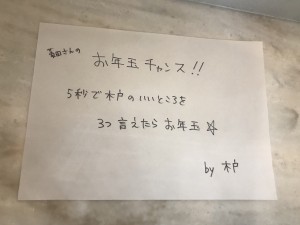 さんの
お年玉チャンス!!
5秒で木戸のいいところを
3つ言えたらお年玉☆
by 木戸